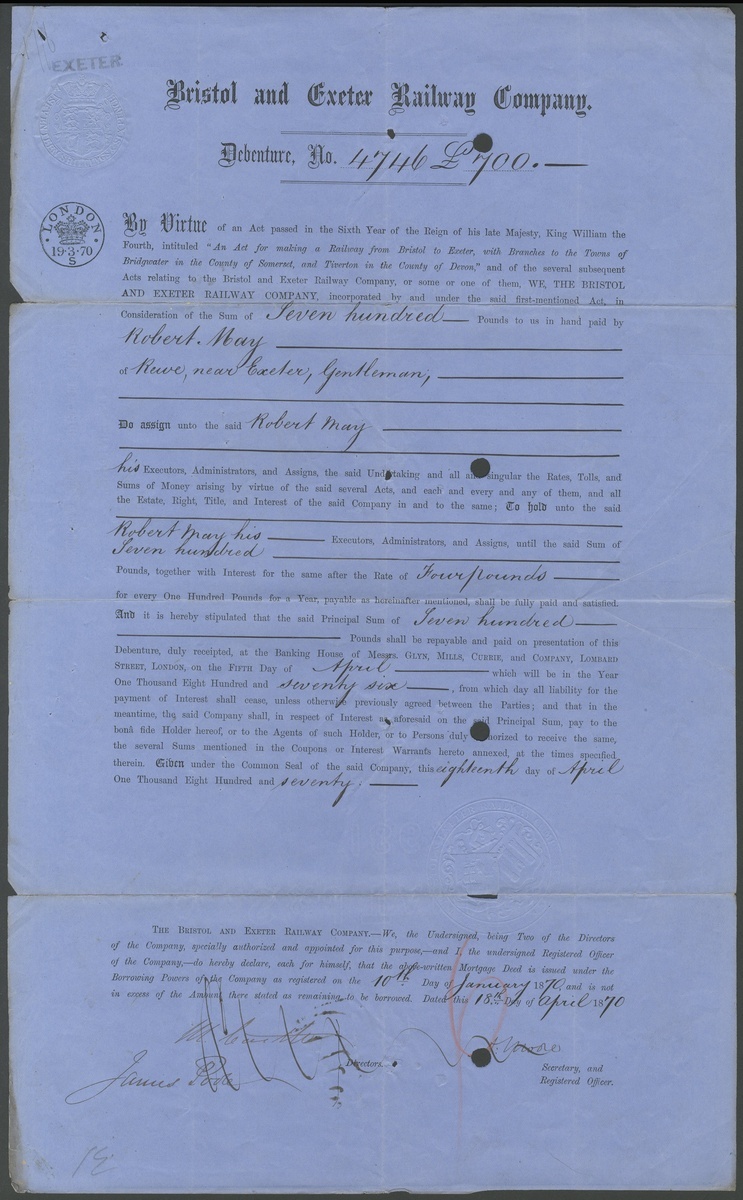 EXETER
Bristol and Exeter Railway Company.
Debenture, No. 4746 £700.
LONDON
19·3·70
S
By Virtue of an Act passed in the Sixth Year of the Reign of his late Majesty, King William the
Fourth, intituled "An Act for making a Railway from Bristol to Exeter, with Branches to the Towns of
Bridgwater in the County of Somerset, and Tiverton in the County of Devon," and of the several subsequent
Acts relating to the Bristol and Exeter Railway Company, or some or one of them, WE, THE BRISTOL
AND EXETER RAILWAY COMPANY, incorporated by and under the said first-mentioned Act, in
Consideration of the Sum of Seven hundred Pounds to us in hand paid by
Robert May
of Rewe, near Exeter, Gentleman,
Do assign unto the said Robert May
his Executors, Administrators, and Assigns, the said Undertaking and all and singular the Rates, Tolls, and
Sums of Money arising by virtue of the said several Acts, and each and every and any of them, and all
the Estate, Right, Title, and Interest of the said Company in and to the same; To hold unto the said
Robert May his Executors, Administrators, and Assigns, until the said Sum of
Seven hundred
Pounds, together with Interest for the same after the Rate of Four pounds
for every One Hundred Pounds for a Year, payable as hereinafter mentioned, shall be fully paid and satisfied.
And it is hereby stipulated that the said Principal Sum of Seven hundred
Pounds shall be repayable and paid on presentation of this
Debenture, duly receipted, at the Banking House of Messrs. GLYN, MILLS, CURRIE, and COMPANY, LOMBARD
STREET, LONDON, on the FIFTH Day of April which will be in the Year
One Thousand Eight Hundred and seventy six, from which day all liability for the
payment of Interest shall cease, unless otherwise previously agreed between the Parties; and that in the
meantime, the said Company shall, in respect of Interest as aforesaid on the said Principal Sum, pay to the
bonâ fide Holder hereof, or to the Agents of such Holder, or to Persons duly authorized to receive the same,
the several Sums mentioned in the Coupons or Interest Warrants hereto annexed, at the times specified
therein. Given under the Common Seal of the said Company, this eighteenth day of April
One Thousand Eight Hundred and seventy.
THE BRISTOL AND EXETER RAILWAY COMPANY.—We, the Undersigned, being Two of the Directors
of the Company, specially authorized and appointed for this purpose,—and I, the undersigned Registered Officer
of the Company,—do hereby declare, each for himself, that the above-written Mortgage Deed is issued under the
Borrowing Powers of the Company as registered on the 10th Day of January 1870, and is not
in excess of the Amount there stated as remaining to be borrowed. Dated this 18th Day of April 1870
James
Directors.
Secretary, and
Registered Officer.